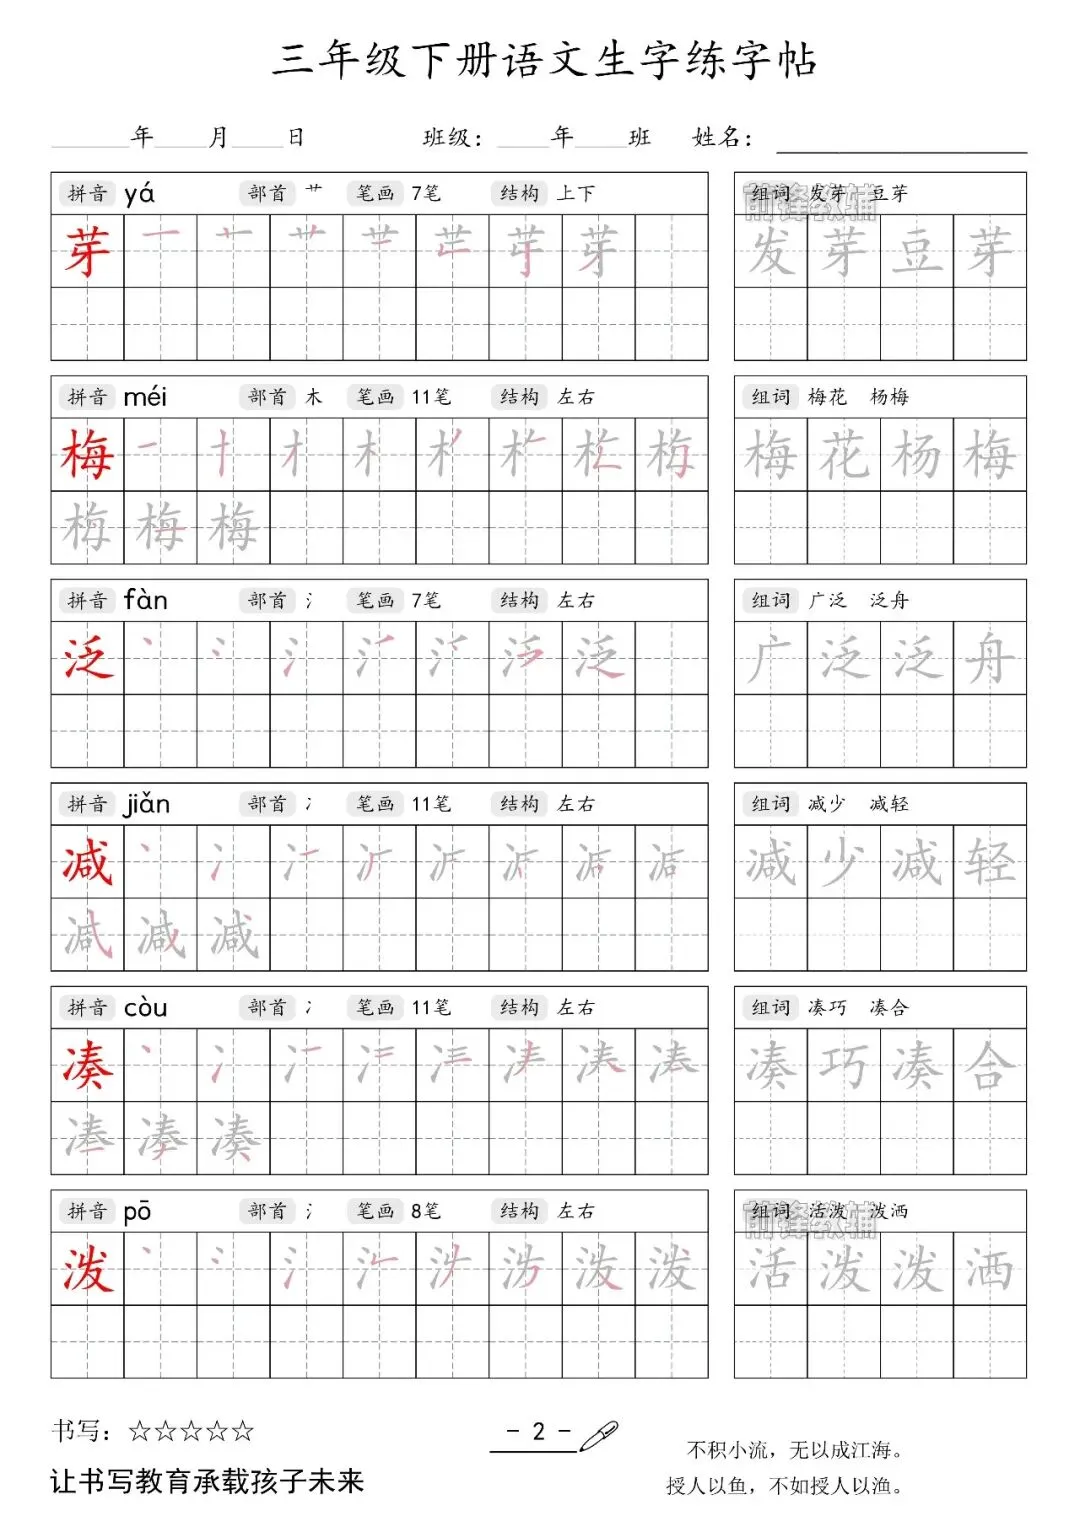 三年级下册语文生字练字帖
____年____月____日 班级：____年____班 姓名：________
拼音 yá 部首 艹 笔画 7笔 结构 上下
组词 发芽 豆芽
前锋教辅
芽
发芽豆芽
拼音 méi 部首 木 笔画 11笔 结构 左右
组词 梅花 杨梅
梅
梅花杨梅
梅梅梅
拼音 fàn 部首 氵 笔画 7笔 结构 左右
组词 广泛 泛舟
泛
广泛泛舟
拼音 jiǎn 部首 冫 笔画 11笔 结构 左右
组词 减少 减轻
减
减少减轻
减减减
拼音 còu 部首 冫 笔画 11笔 结构 左右
组词 凑巧 凑合
凑
凑巧凑合
凑凑凑
拼音 pō 部首 氵 笔画 8笔 结构 左右
组词 活泼 泼洒
前锋教辅
泼
活泼泼洒
书写：☆☆☆☆☆
- 2 -
不积小流，无以成江海。
让书写教育承载孩子未来
授人以鱼，不如授人以渔。